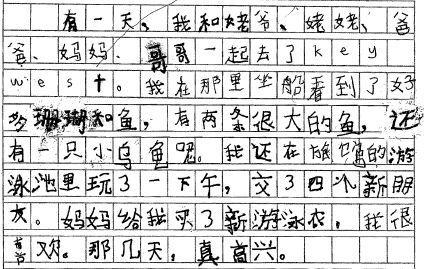 有一天,我和姥爷、姥姥、爸
爸、妈妈、哥哥一起去了key
west。我在那里坐船看到了好
多珊瑚和鱼,有两条很大的鱼,还
有一只小乌龟呢。我还在旅馆的游
泳池里玩了一下午,交了四个新朋
友。妈妈给我买了新游泳衣,我很
喜欢。那几天,真高兴。